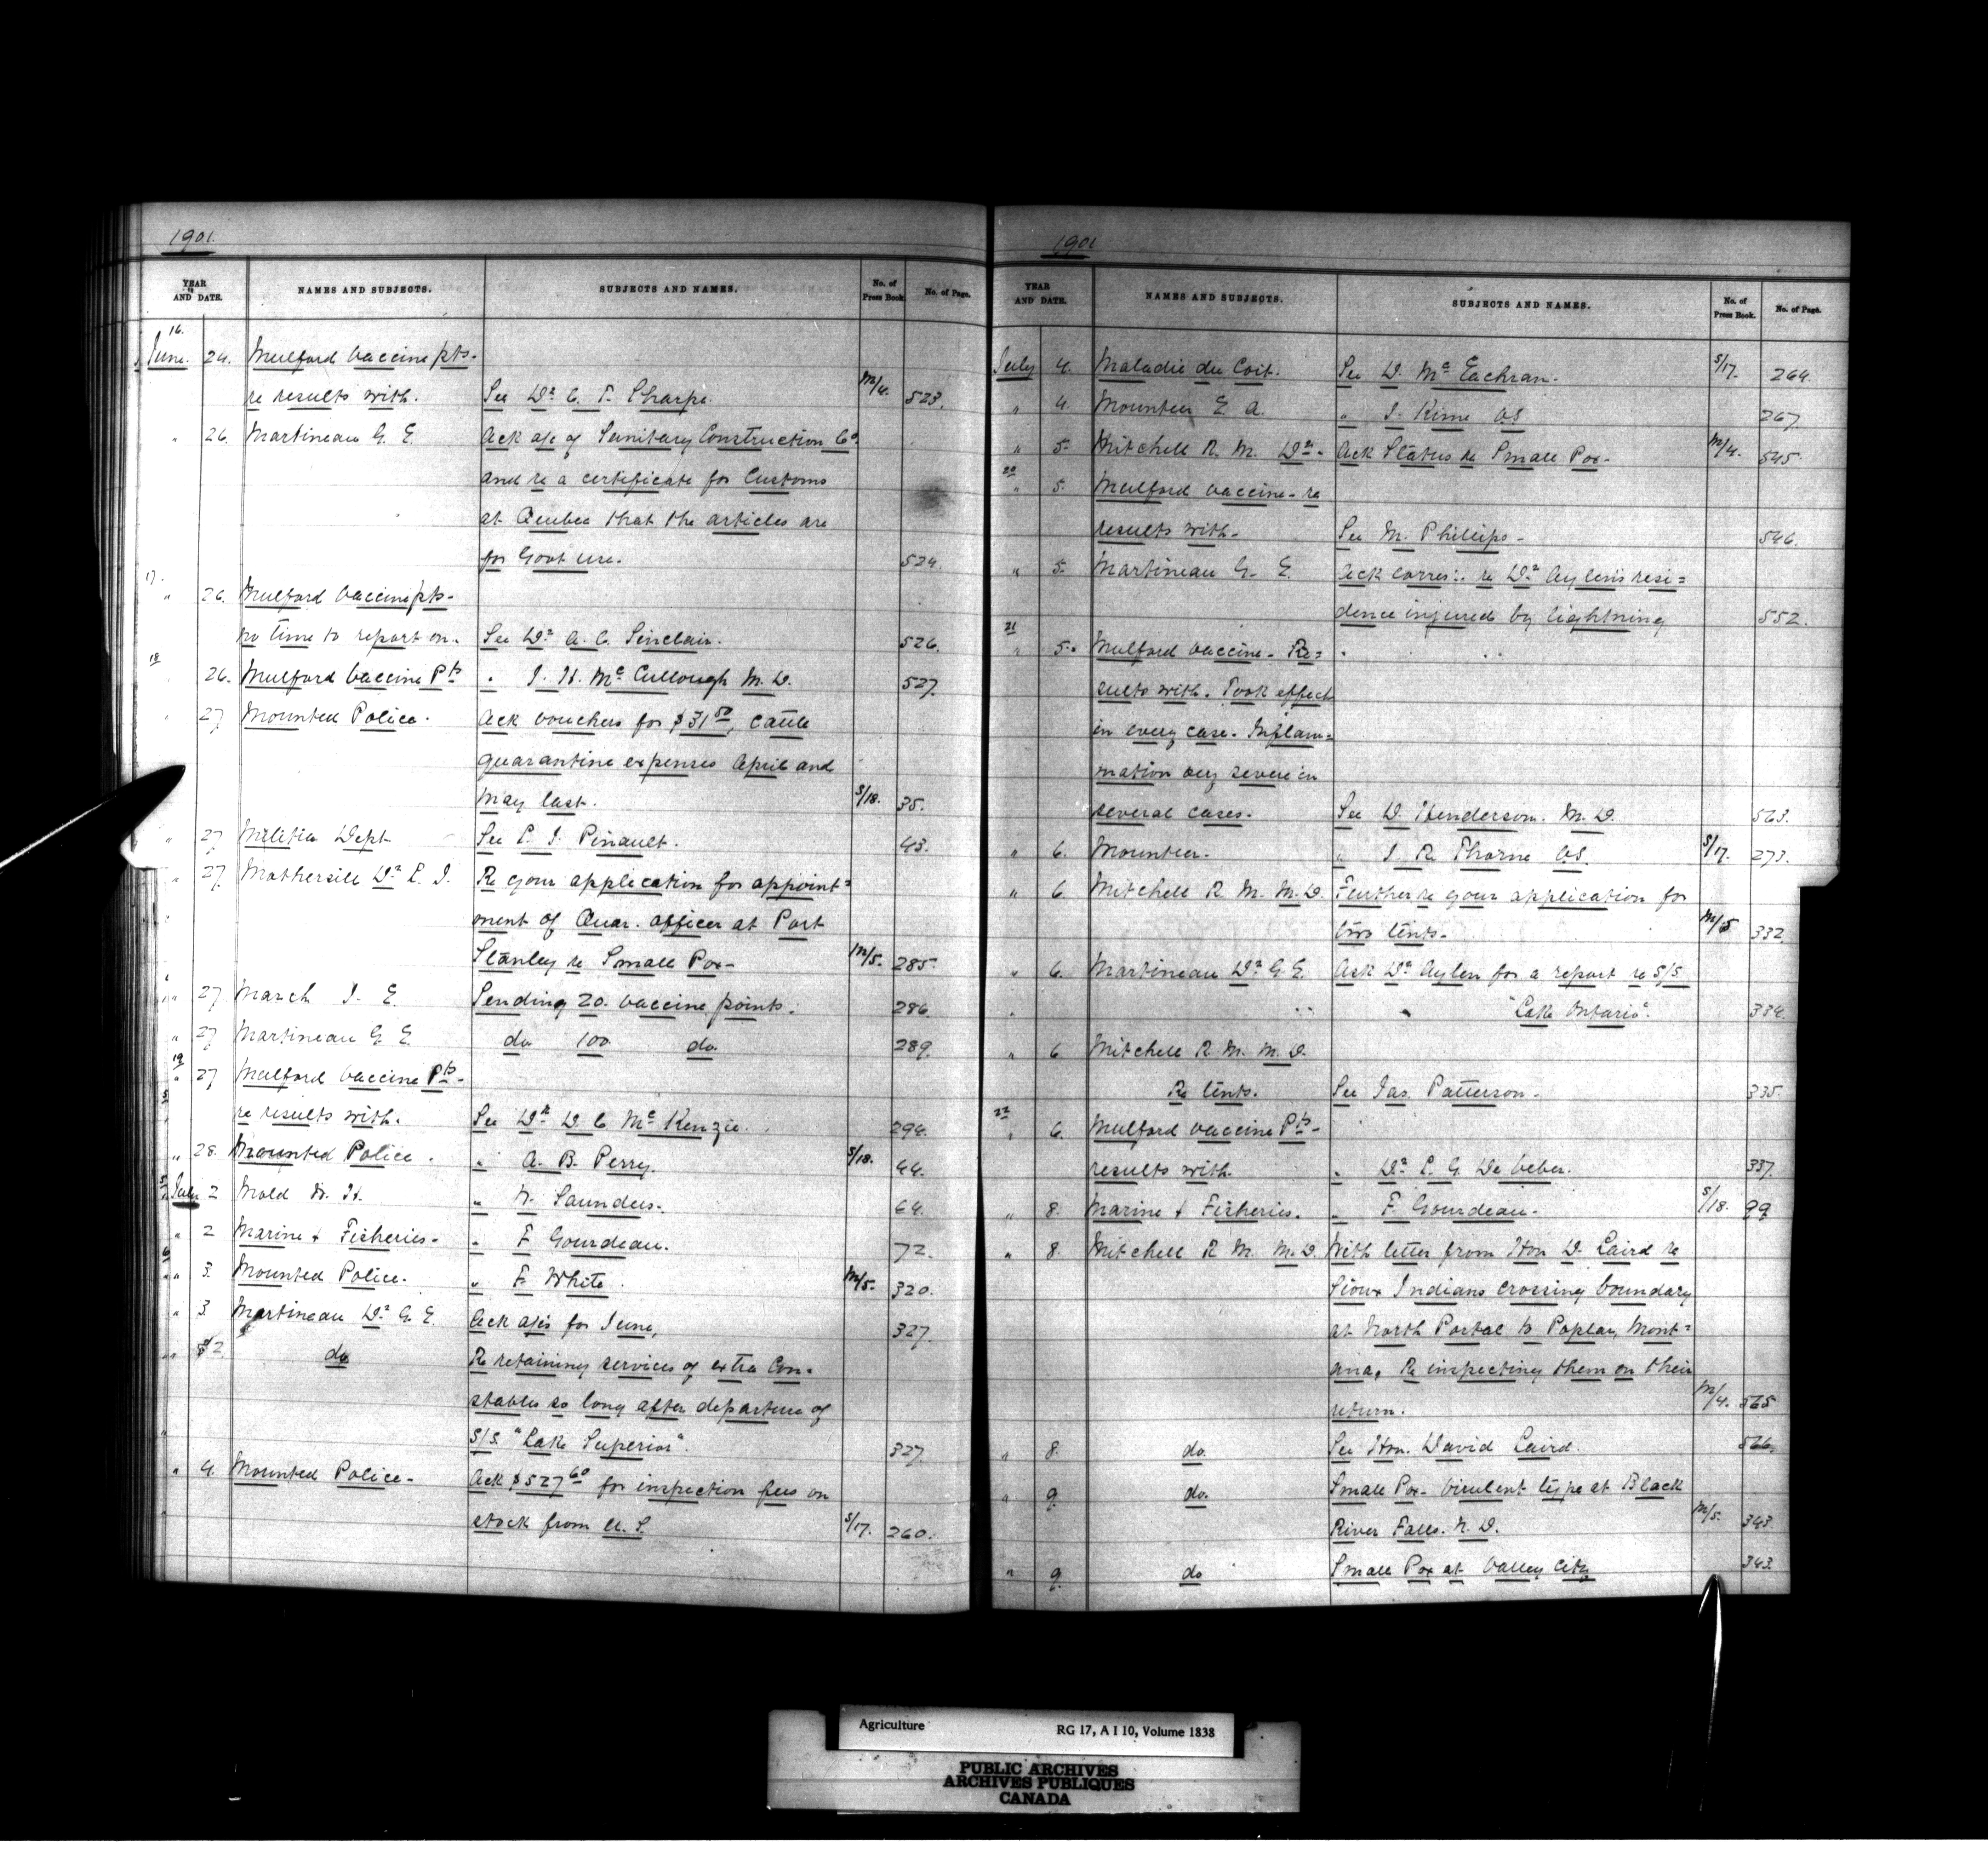 1901.
YEAR AND DATE. NAMES AND SUBJECTS. SUBJECTS AND NAMES. No. of Press Book. No. of Page.
16.
June. 24. Mulford Vaccine pts.
re results with. See Dr C. F. Sharpe. M/4. 523.
" 26. Martineau G. E. Ack a/c of Sanitary Construction Co.
and re a certificate for Customs
at Quebec that the articles are
for Govt use. 524.
17.
" 26. Mulford Vaccine pts-
no time to report on. See Dr A. C. Sinclair. 526.
18
26. Mulford Vaccine Pts " J. H. Mc Cullough M.D. 527
27 Mounted Police. Ack vouchers for $31 50, cattle
quarantine expenses April and
May last. S/18. 35.
" 27 Militia Dept. See L. J. Pinault. 43.
" 27. Mothersill Dr L. J. Re your application for appoint=
ment of Quar. officer at Port
Stanley re Small Pox- M/5. 285.
" 27 March J. E. Sending 20. vaccine points. 286.
" 27 Martineau G E. do 100 do. 289.
19
" 27 Mulford Vaccine Pts-
re results with. See Dr D. C Mc Kenzie. 294.
" 28. Mounted Police. " A. B. Perry. S/18. 44.
July 2 Mold W. H. " W. Saunders. 64.
" 2 Marine & Fisheries- " F Gourdeau. 72.
" 3. Mounted Police. " F. White. M/5. 320.
" 3. Martineau Dr G E. Ack a/cs for June, 327.
" 2 do Re retaining services of extra Con-
stables so long after departure of
S/S. "Lake Superior". 327
" 4. Mounted Police- Ack $527 60 for inspection fees on
stock from U. S. S/17. 260.
1901
YEAR AND DATE. NAMES AND SUBJECTS. SUBJECTS AND NAMES. No. of Press Book. No. of Page.
July 4. Maladie du Coit. See D. Mc Eachran. S/17. 264.
" 4. Mounteer E. A. " J. Kime VS 267
" 5- Mitchell R. M. Dr- Ack Status re Small Pox- M/4. 545.
20
" 5. Mulford vaccine- re
results with- See M. Phillips- 546.
" 5. Martineau G. E. Ack corres:. re Dr Aylen's resi=
dence injured by lightning 552.
21
" 5. Mulford vaccine- Re=
sults with. Took effect
in every case. Inflam=
mation very severe in
several cases. See D. Henderson. M. D. 563.
" 6. Mounteer. " J. R. Thorne VS. S/17. 273.
" 6 Mitchell R. M. M.D. Further re your application for
two tents- M/5 332.
" 6. Martineau Dr G. E. Ask Dr Aylen for a report re S/S
" "Lake Ontario". 334.
" 6 Mitchell R. M. M. D.
Re tents. See Jas. Patterson. 335.
22
" 6. Mulford vaccine Pts-
results with. " Dr L. G. De Veber. 337.
" 8. Marine & Fisheries. " F. Gourdeau- S/18. 99
" 8. Mitchell R. M. M.D. With letter from Hon D. Laird re
Sioux Indians crossing boundary
at North Portal to Poplar, Mont=
ana. Re inspecting them on their
return. M/4. 565
" 8. do. See Hon. David Laird. 566.
" 9. do. Small Pox- virulent type at Black
River Falls. N. D. M/5. 343.
" 9. do Small Pox at Valley City 343.
Agriculture RG 17, A I 10, Volume 1838
PUBLIC ARCHIVES
ARCHIVES PUBLIQUES
CANADA